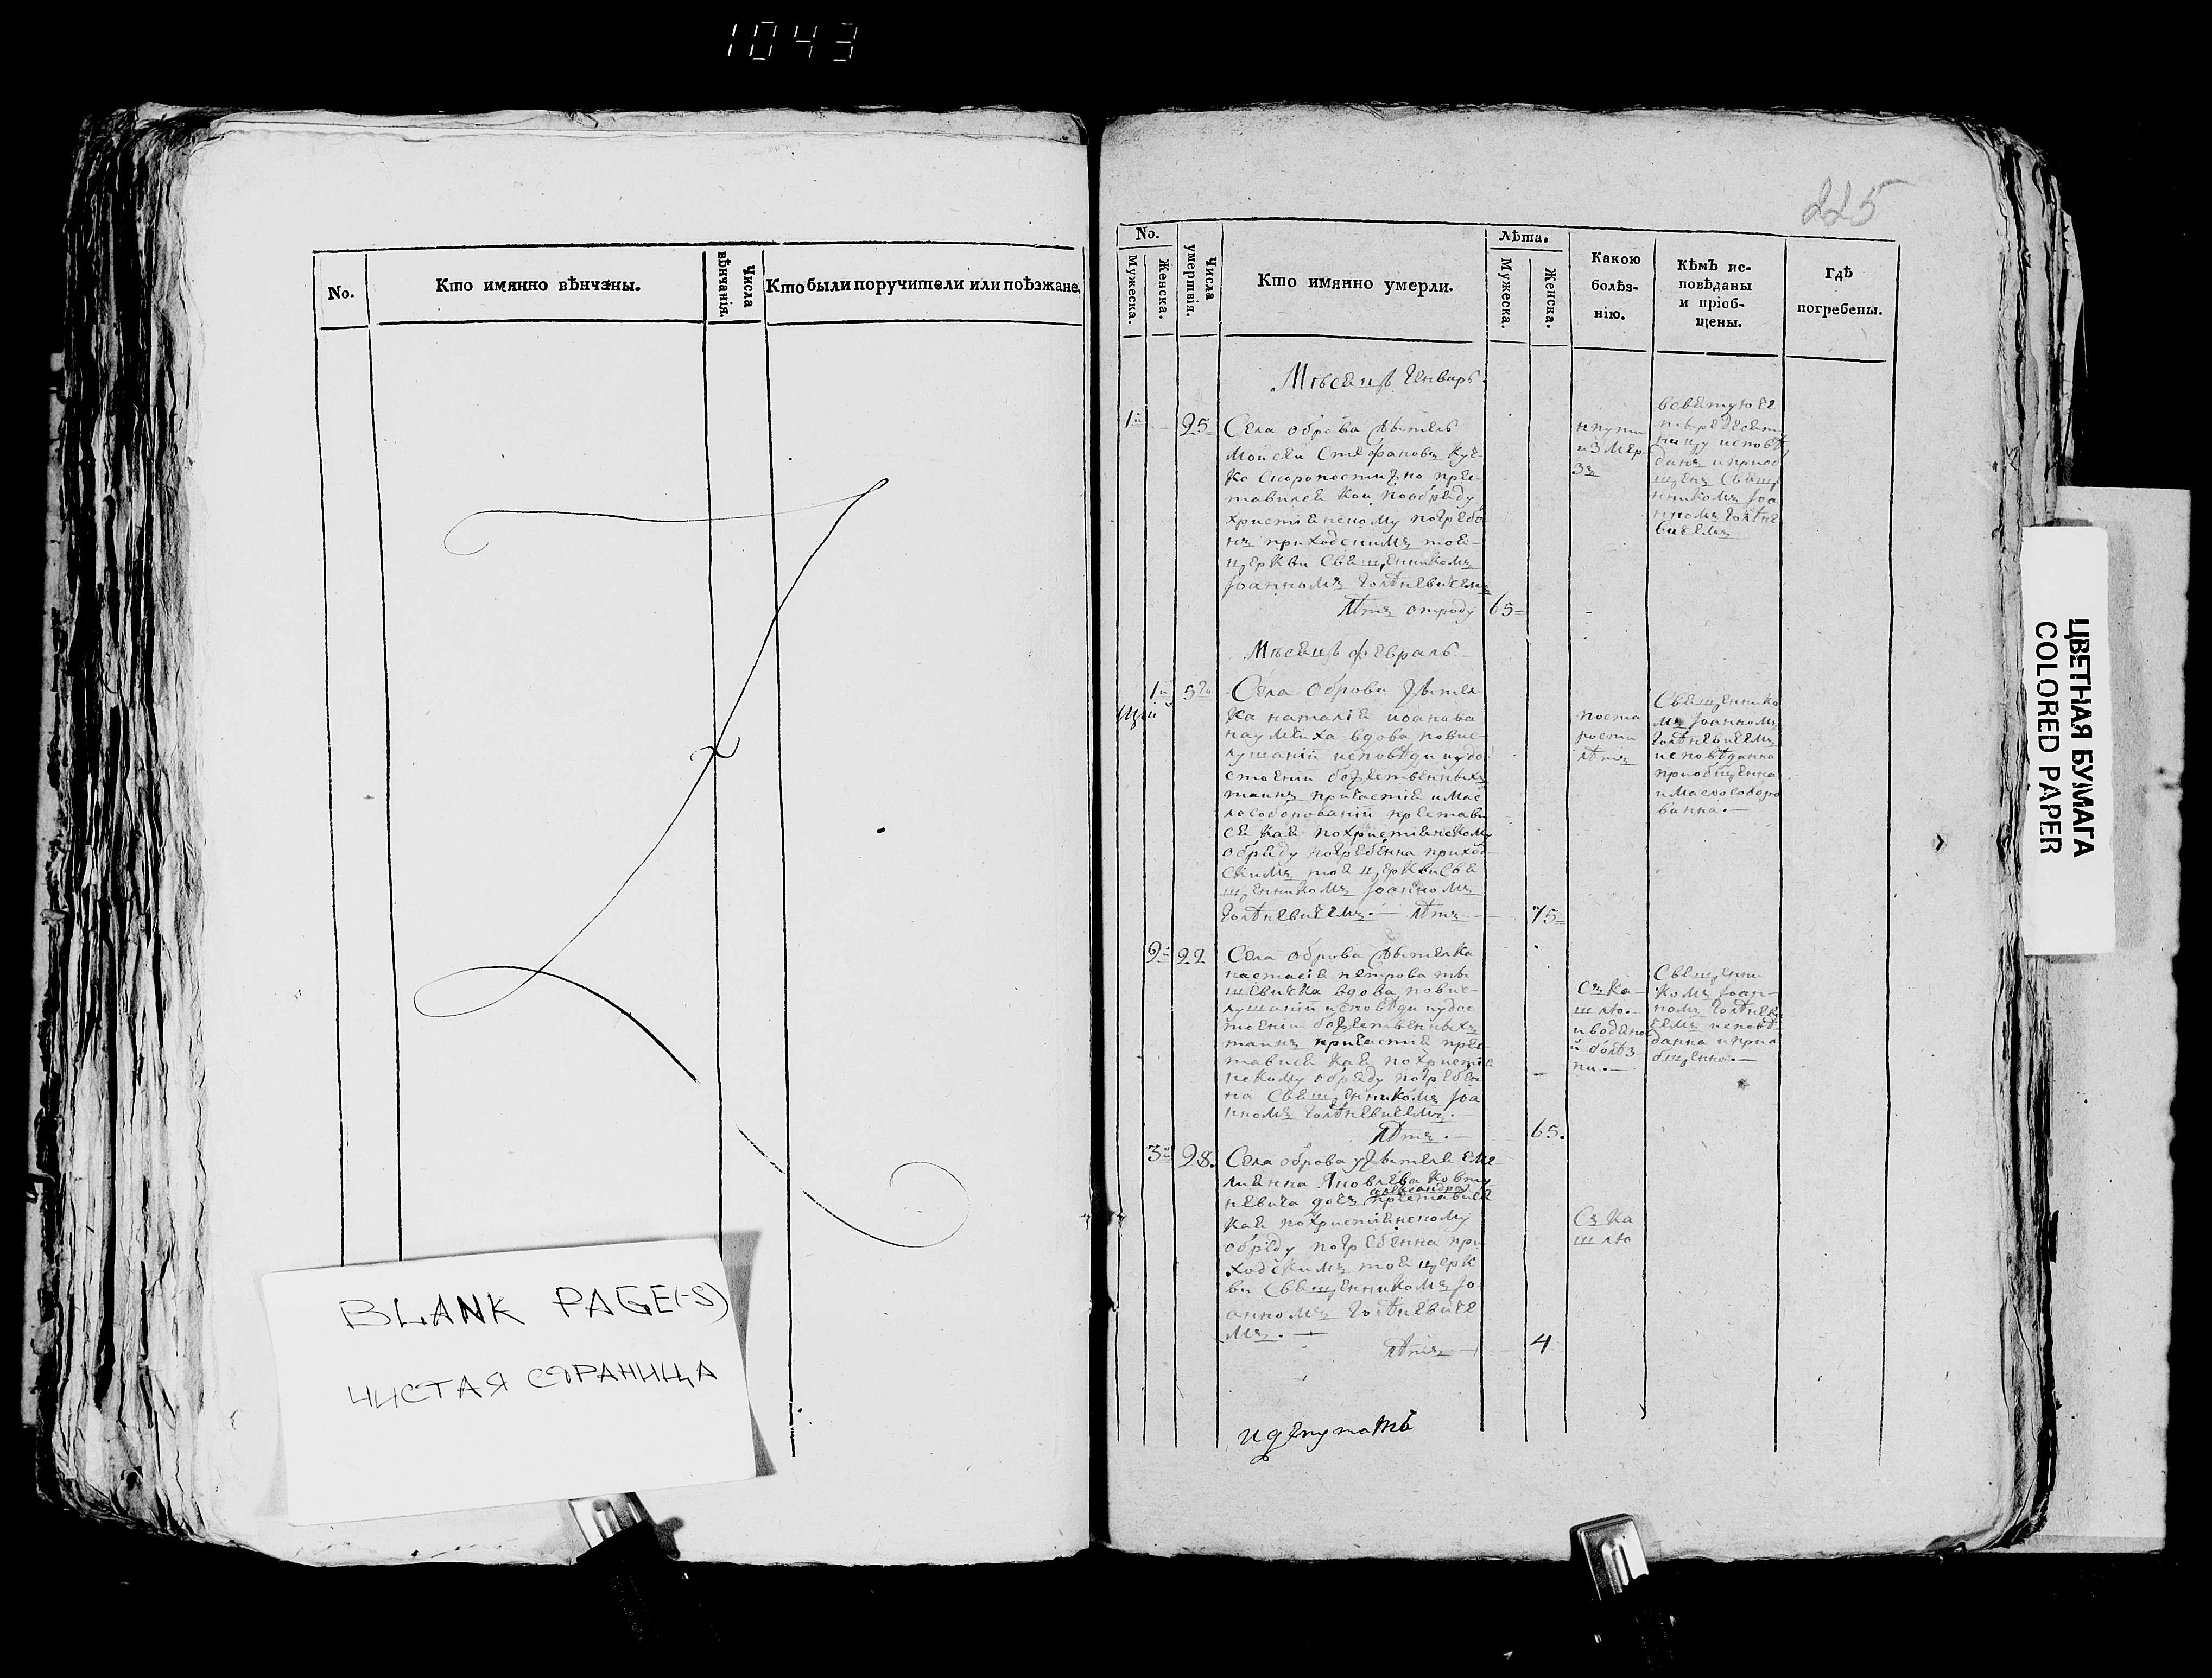 1043
No.
Кто имянно вѣнчаны.
Числа
вѣнчанія.
Кто были поручители или поѣзжане.
BLANK PAGE(-S)
ЧИСТАЯ СТРАНИЦА
225
No.
Мужеска.
Женска.
Числа
умертвія.
Кто имянно умерли.
Лѣта.
Мужеска.
Женска.
Какою
болѣз-
нію.
Кѣмъ ис-
повѣданы
и пріоб-
щены.
Гдѣ
погребены.
Мѣсяцъ Генварь.
1й
25
Села оброва житель
Моисей Стефановъ Куч-
ко скоропостижно пре-
ставился кой пообряду
христіянскому погребе
нъ приходскимъ тоя-
церкви Священникомъ
Іоанномъ
Лѣтъ отроду 65
нпути
изМер
зъ
Мѣсяцъ февраль
1я
5го
Села Оброва жител
ка наталія иоанова
наумчиха вдова повис
лушаній исповѣди иудо
стоеніи божественныхъ
таинъ причастія имас
лособорованій престави
ся кая похристіянскому
обряду погребенна приход
скимъ тоя церкви Свя
щенникомъ Іоанномъ
Лѣтъ 75
поста
рости
лѣтъ
Священнико
мъ Іоанномъ
исповѣданна
приобщенна
и маслособоро
ванна.
2я
22
Села оброва жителка
настасія петрова
вдова повис-
лушаній исповѣди иудос
тоеніи божественныхъ
таинъ причастія прес
тавися кая похристія
нскому обряду погребен
на Священникомъ Іоа
нномъ
Лѣтъ. 65.
Съ ка
шлю
и водяно
й болѣз
ни.
Священни
комъ Іоан-
номъ
исповѣ
данна иприо
бщенна.
3я
28.
Села оброва жителя Еме
лиянна Яковлева
дочь александра преставися
кая похристіянскому
обряду погребенна при
ходскимъ тоя церк
ви Священникомъ Іо
анномъ
мъ.
Лѣтъ 4
Съ ка
шлю
ЦВЕТНАЯ БУМАГА
COLORED PAPER